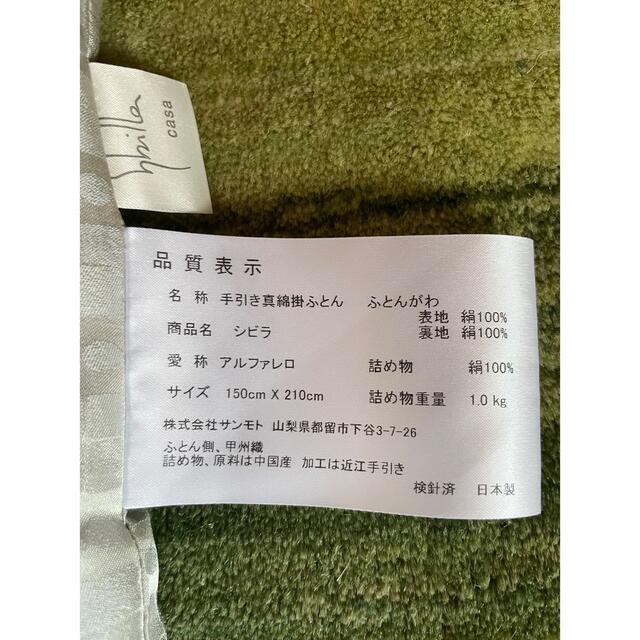 Sybilla
casa
品質表示
名 称 手引き真綿掛ふとん ふとんがわ
表地 絹100%
商品名 シビラ 裏地 絹100%
愛 称 アルファレロ 詰め物 絹100%
サイズ 150cm X 210cm 詰め物重量 1.0 kg
株式会社サンモト 山梨県都留市下谷3-7-26
ふとん側、甲州織
詰め物、原料は中国産 加工は近江手引き
検針済 日本製